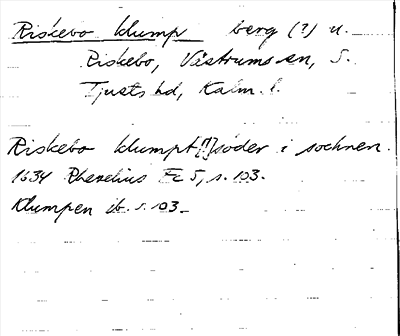 Riskebo klump berg (?) u.
Riskebo, Västrums sn, S.
Tjusts hd, Kalm. l.
Riskebo klumpt[!] söder i sochnen.
1634 Rhezelius Fc 5, s. 103.
Klumpen ib. s. 103.